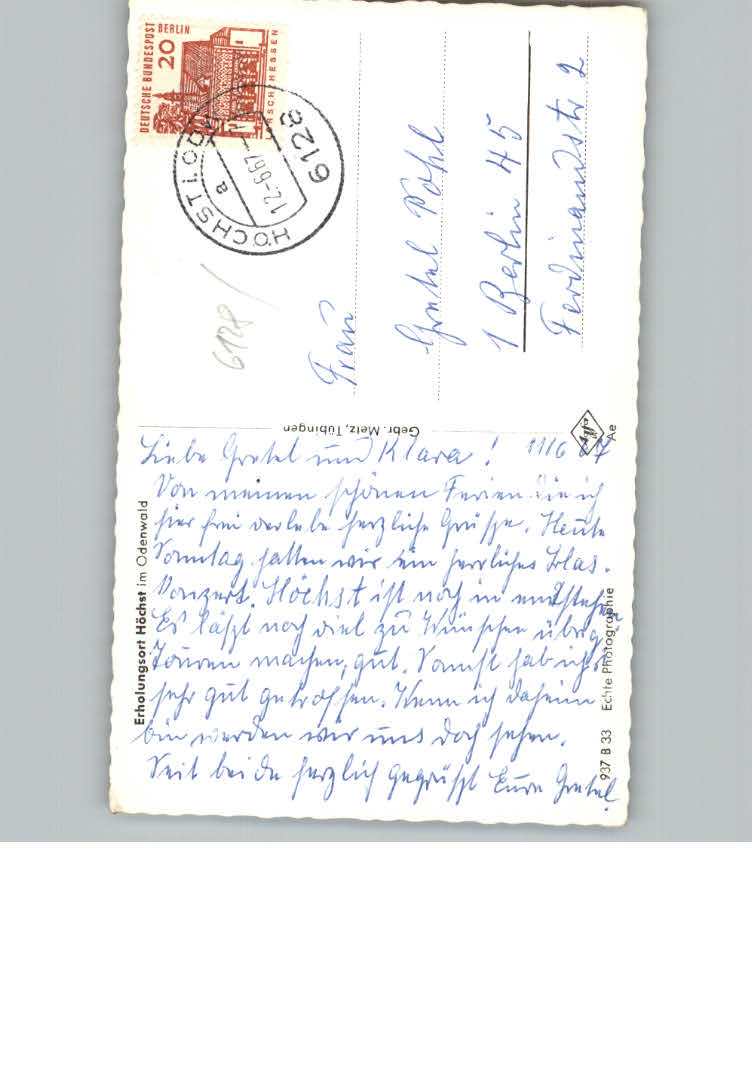 DEUTSCHE BUNDESPOST BERLIN
20
LORSCH/HESSEN
HÖCHST I. ODW
a
12.-6.67
6128
6128
Frau
Gretel Pohl
1 Berlin 45
Ferdinandstr 2
Gebr. Metz, Tübingen
Agfa
Ae
Erholungsort Höchst im Odenwald
937 B 33 Echte Photographie
Liebe Gretel und Klara! 11/6 67
Von meinen schönen Ferien die ich
hier frei verlebe herzliche Grüße. Heute
Sonntag hatten wir ein herrliches Blas-
Konzert. Höchst ist noch in entstehen
Es läßt noch viel zu Wünschen übrig
Touren machen, gut. Sonst hab ich
sehr gut getroffen. Wenn ich daheim
bin werden wir uns doch sehen.
Seit beide herzlich gegrüßt Eure Gretel